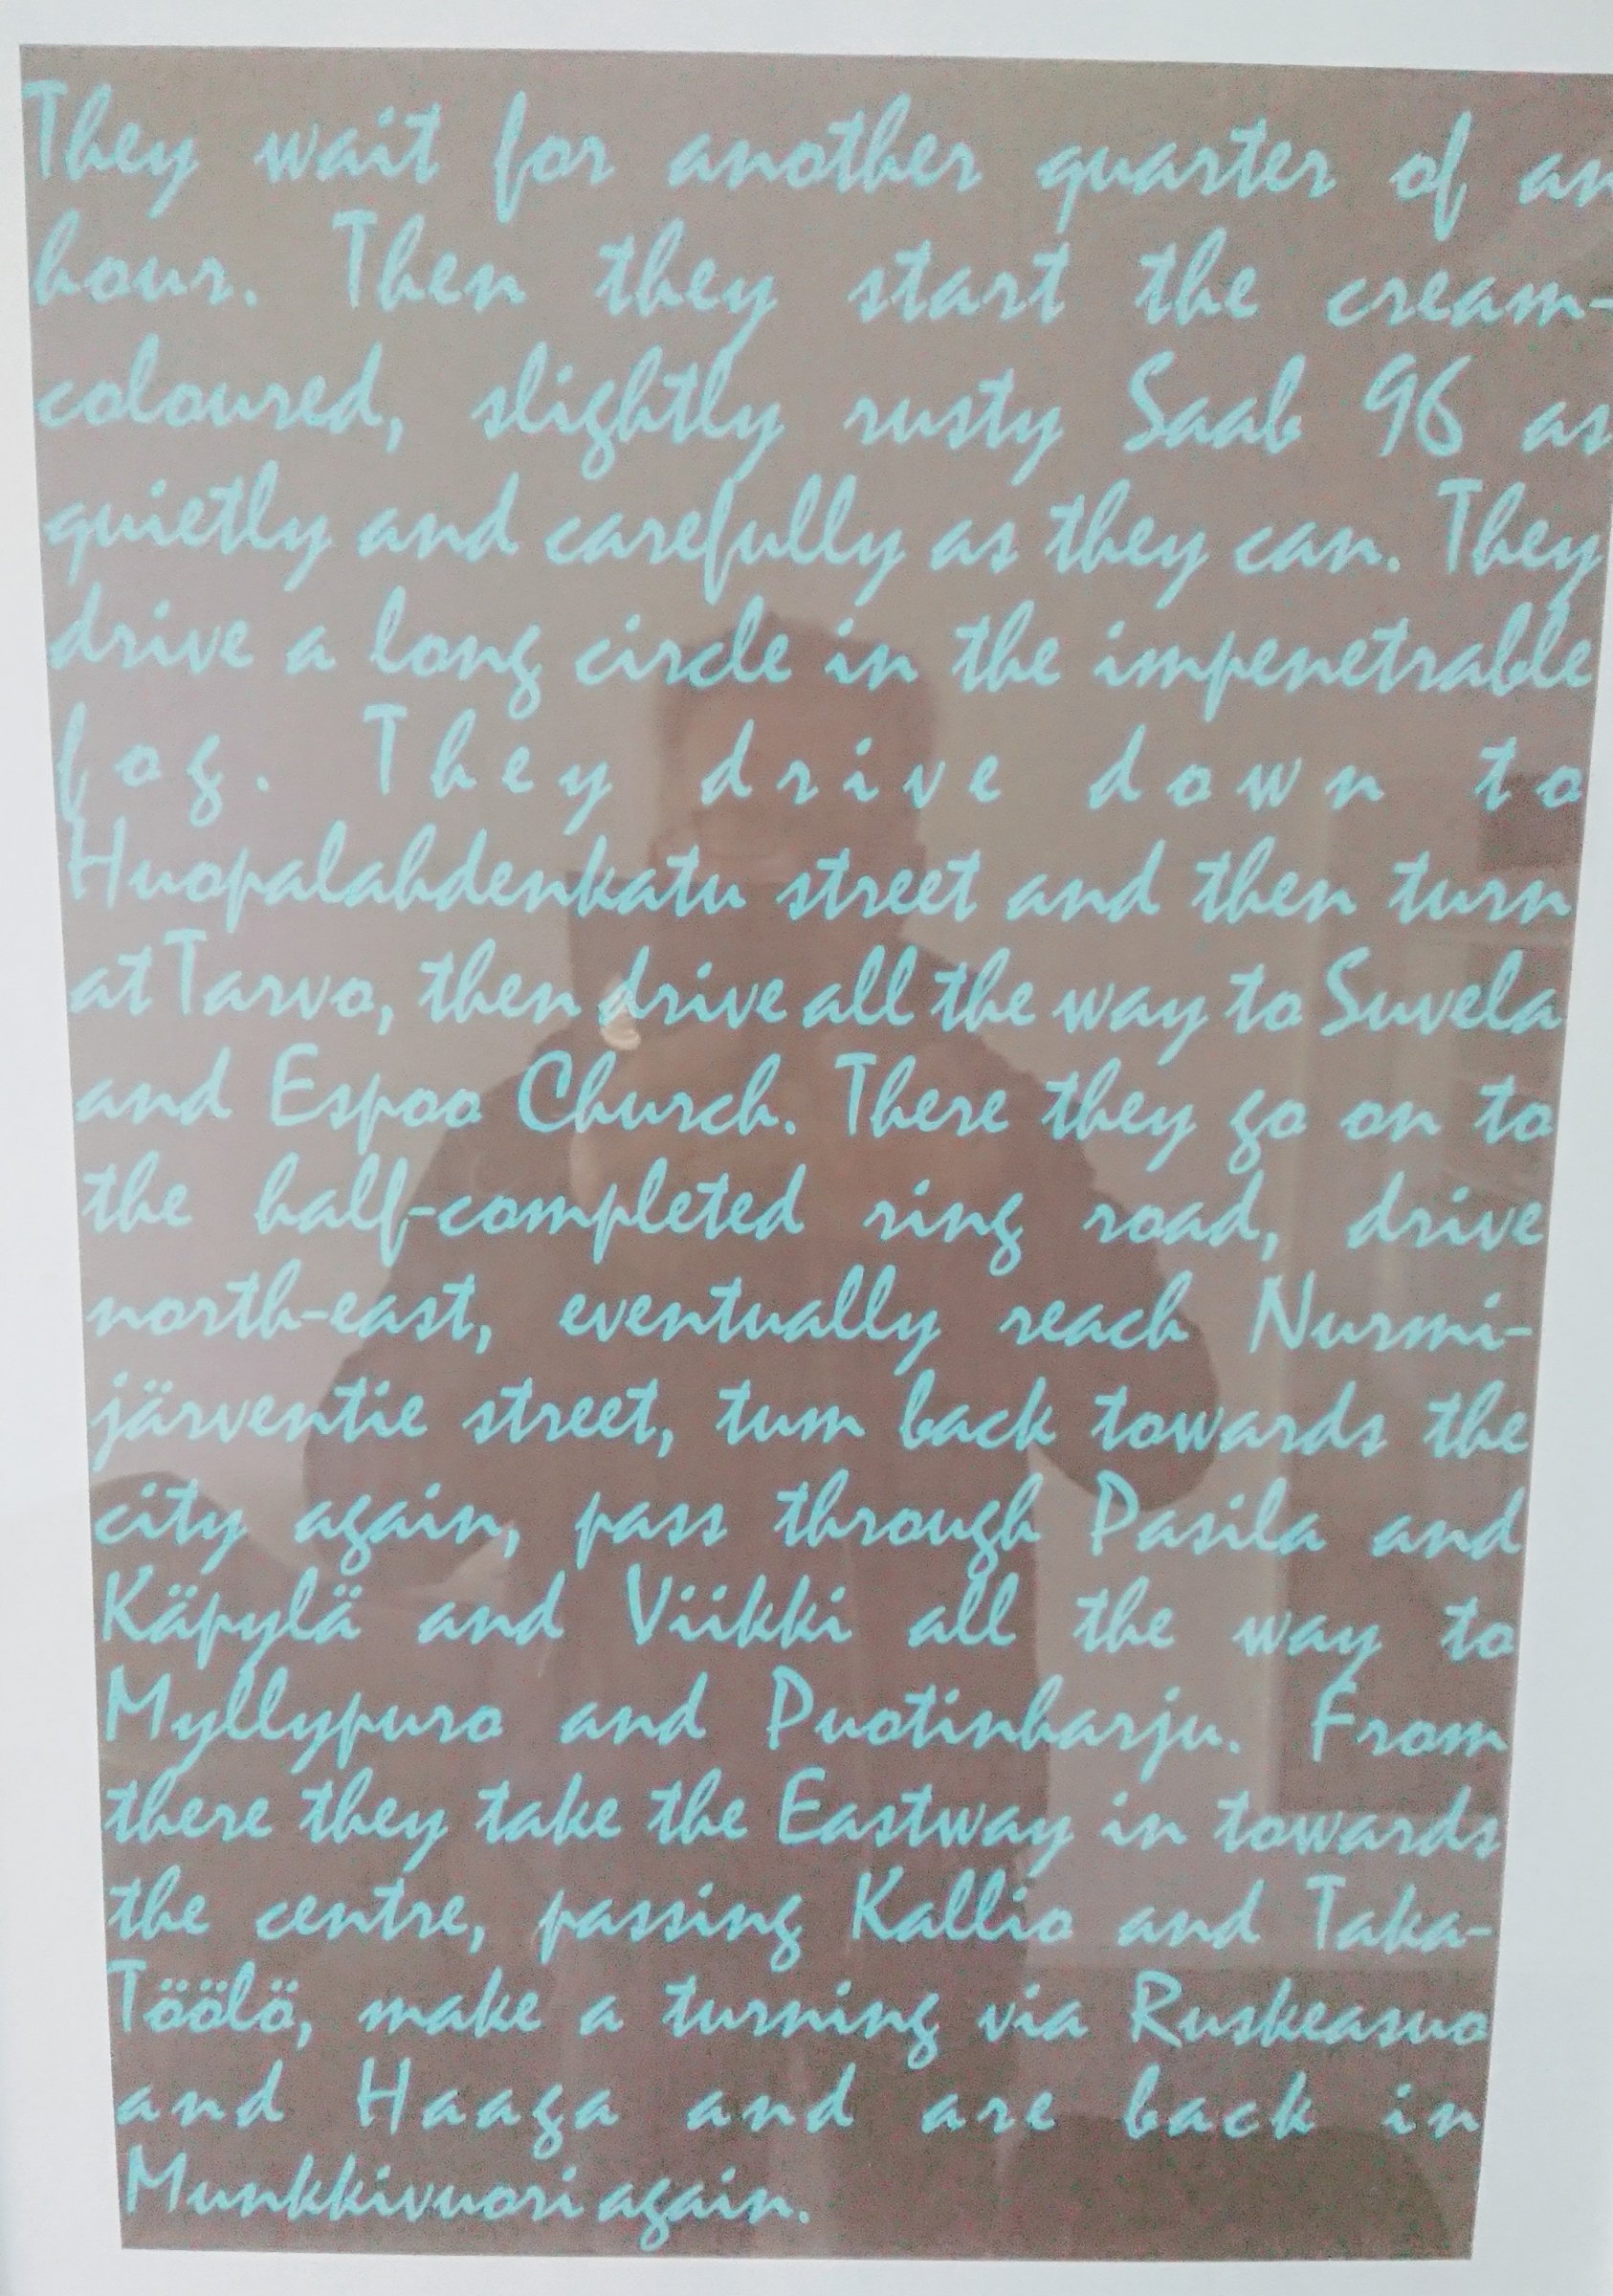 They wait for another quarter of an
hour. Then they start the cream-
coloured, slightly rusty Saab 96 as
quietly and carefully as they can. They
drive a long circle in the impenetrable
fog. They drive down to
Huopalahdenkatu street and then turn
at Tarvo, then drive all the way to Suvela
and Espoo Church. There they go on to
the half-completed ring road, drive
north-east, eventually reach Nurmi-
järventie street, tum back towards the
city again, pass through Pasila and
Käpylä and Viikki all the way to
Myllypuro and Puotinharju. From
there they take the Eastway in towards
the centre, passing Kallio and Taka-
Töölö, make a turning via Ruskeasuo
and Haaga and are back in
Munkkivuori again.